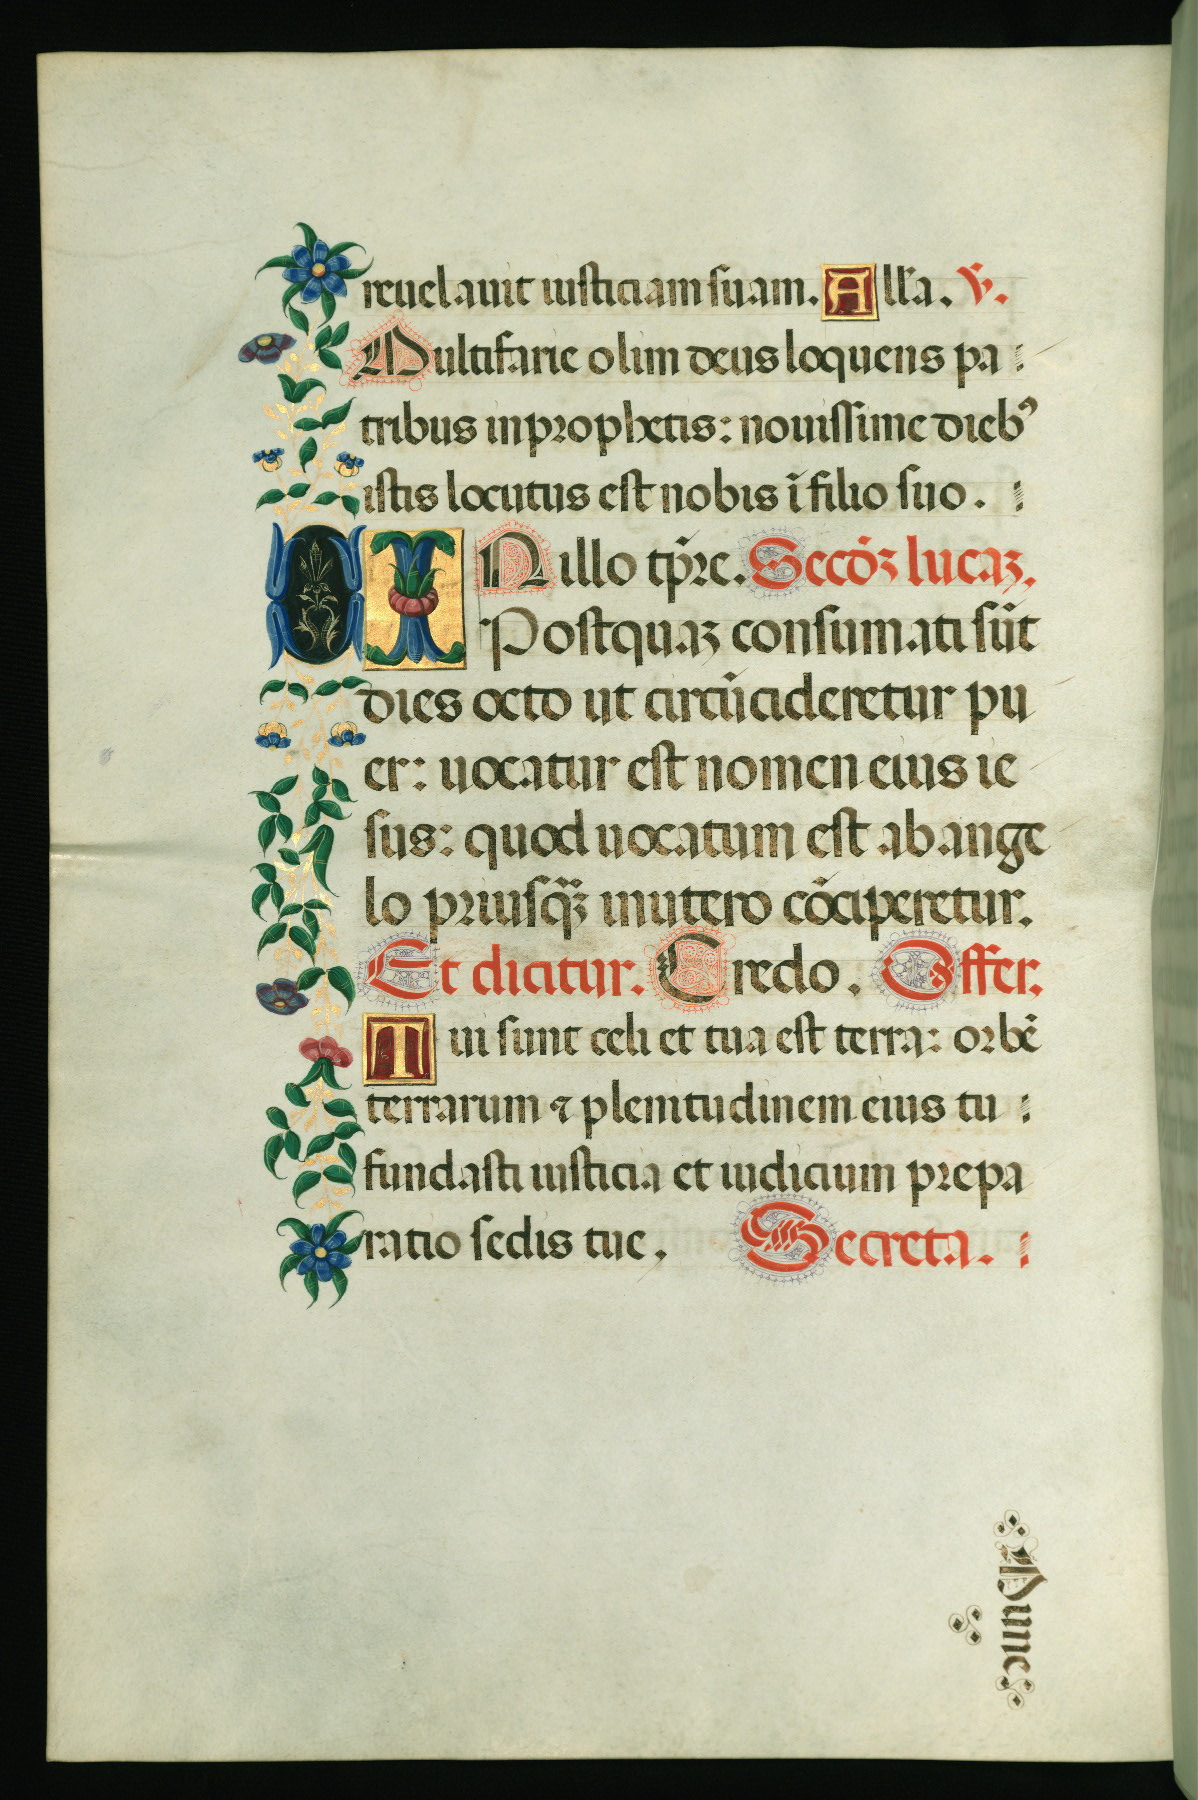 reuelauit iusticiam suam. All'a. V.
Multifarie olim deus loquens pa
tribus in prophetis: nouissime dieb⁹
istis locutus est nobis ĩ filio suo.
IN illo tp̃re. Secõꝫ lucaꝫ.
Postquaꝫ consumati sũt
dies octo ut circũcideretur pu
er: uocatur est nomen eius ie
sus: quod uocatum est ab ange
lo priusq̃ꝫ in utero cõciperetur.
Et dicitur. Credo. Offer.
Tui sunt celi et tua est terra: orbẽ
terrarum ⁊ plenitudinem eius tu
fundasti iusticia et iudicium prepa
ratio sedis tue. Secreta.
Mune